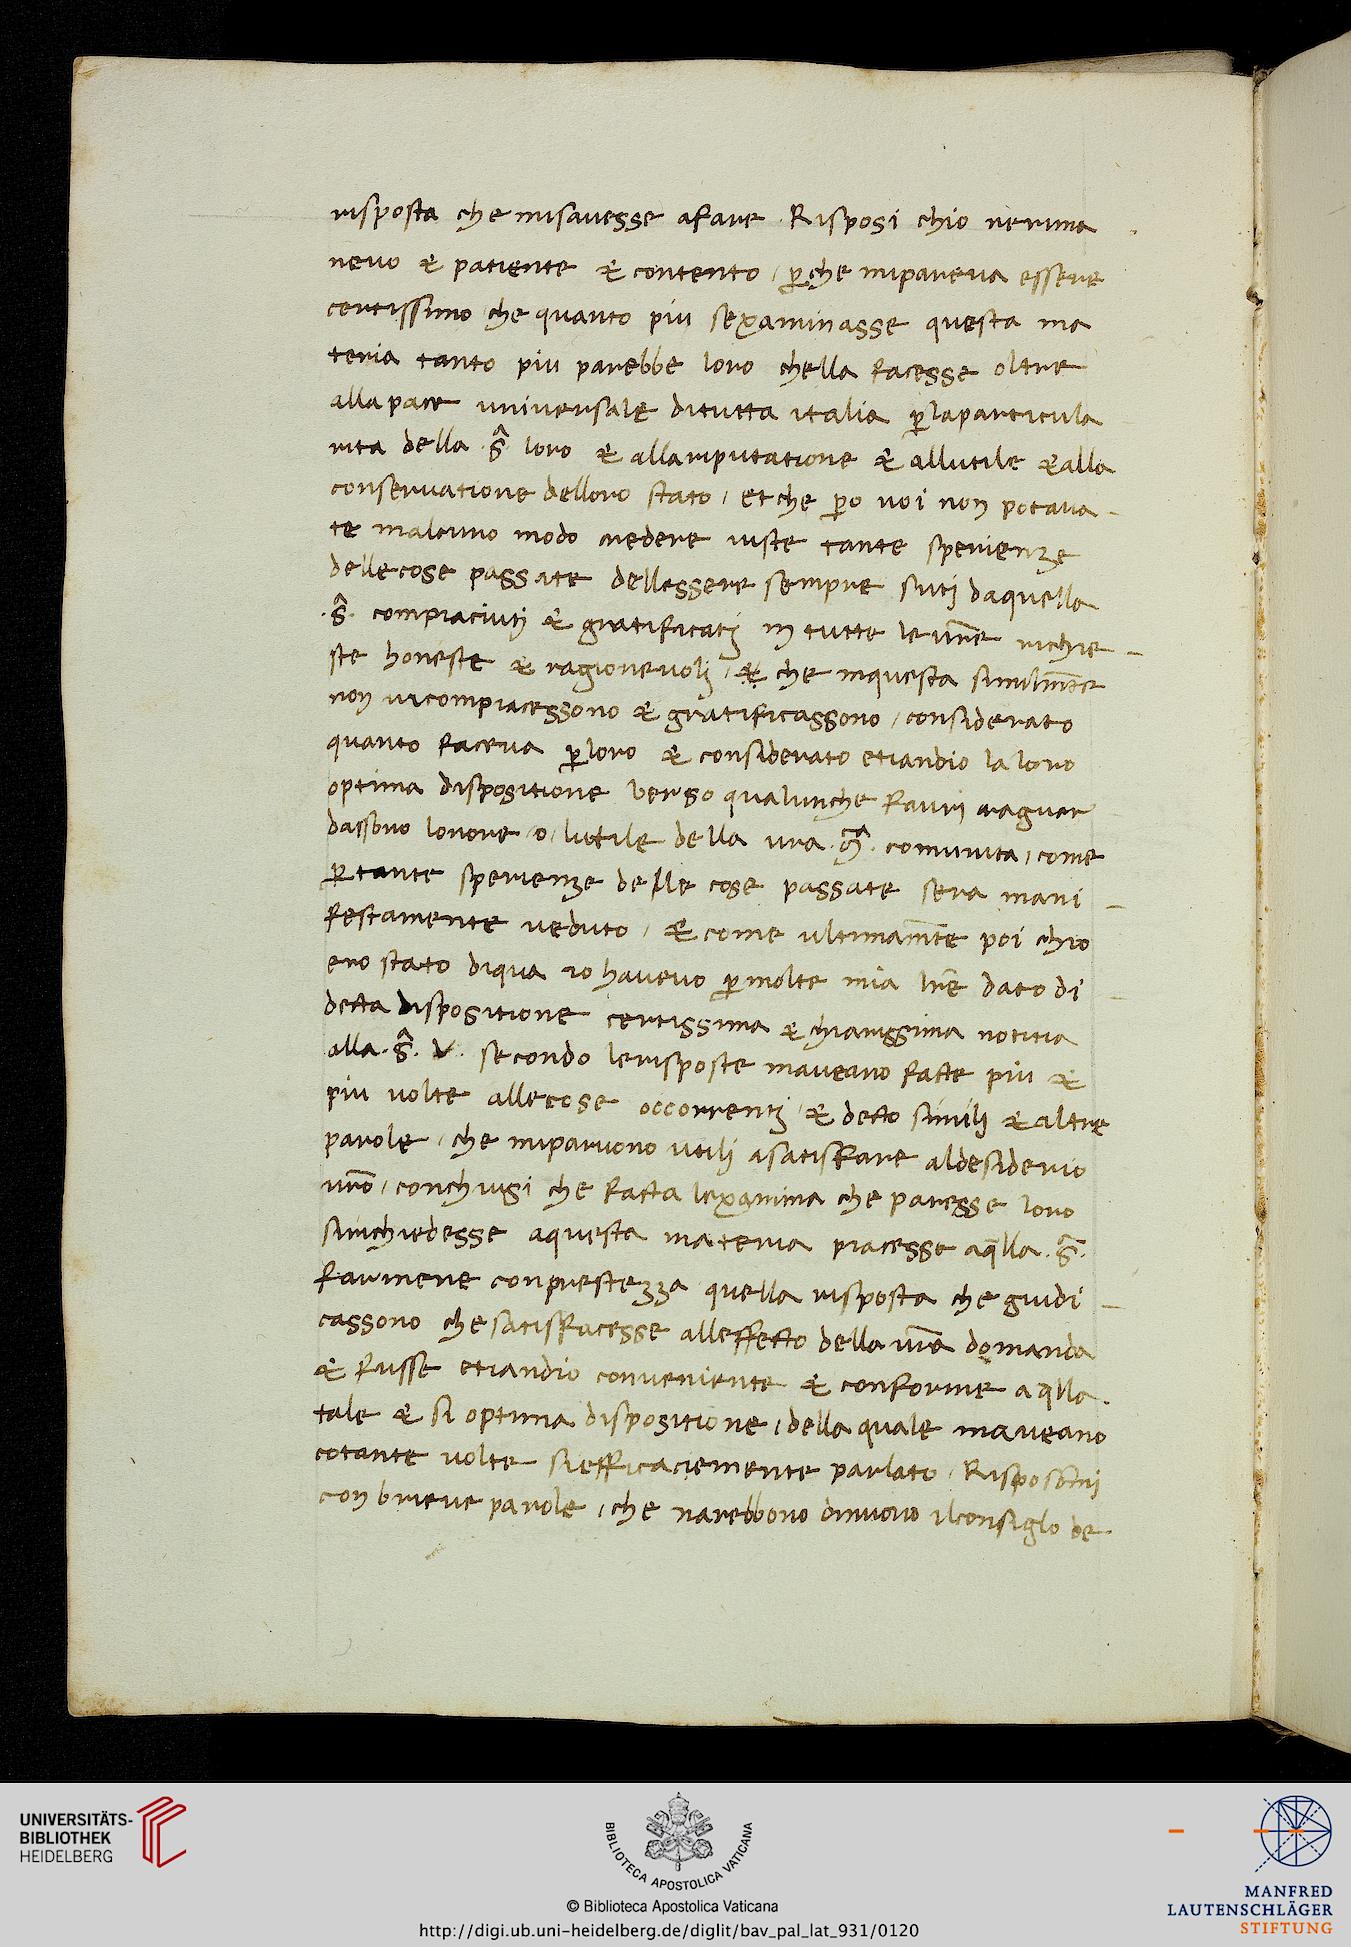 risposta che misavesse afare. Risposi chio nerima
nevo & patiente & contento, ꝑche mipareva essere
certissimo che quanto piu sexaminasse questa ma
teria tanto piu parebbe loro chella facesse oltre
allapace universale ditutta italia ꝑlaparticula
rita della .S̄ᵃ. loro & allariputatione & allutile &alla
conservatione delloro stato, etche ꝑo voi non potava
te malcuno modo credere viste tante sperienze
dellecose passate dellessere sempre suti daquella
.S̄ᵃ. compiaciuti & gratificatj in tutte levr̄e richie
ste honeste & ragionevolj, & che inquesta similmēte
non vicompiacessono & gratificassono, considerato
quanto faceva ꝑloro & considerato etiandio la loro
optima dispositione verso qualunche favri
dassono lonore o, lutile della vra .M̄ᵃ. comunita, come
ꝑ tante sperienze delle cose passate sera mani
festamente veduto, & come ultimamēte poi chio
ero stato diqua io havevo ꝑmolte mia lr̄e dato di
decta dispositione certissima & chiarissima notitia
alla .S̄ᵃ. V. secondo lerisposte maveano facte piu &
piu volte allecose occorrentj, & decto similj & altre
parole, che miparvono utilj asatisfare aldesiderio
vr̄o, conchiusi che facta lexamina che paresse loro
sirichiedesse aquesta materia piacesse aq̄lla .S̄ᵃ.
farmene conprestezza quella risposta che giudi
cassono che satisfacesse alleffecto della vr̄a domanda
& fusse etiandio conveniente & conforme aq̄lla
tale & si optima dispositione, della quale maveano
cotante volte siefficaciemente parlato. Risposōmi
con brieve parole, che narebbono dinuovo ilconsiglo de
UNIVERSITÄTS-
BIBLIOTHEK
HEIDELBERG
BIBLIOTECA APOSTOLICA VATICANA
© Biblioteca Apostolica Vaticana
http://digi.ub.uni-heidelberg.de/diglit/bav_pal_lat_931/0120
MANFRED
LAUTENSCHLÄGER
STIFTUNG